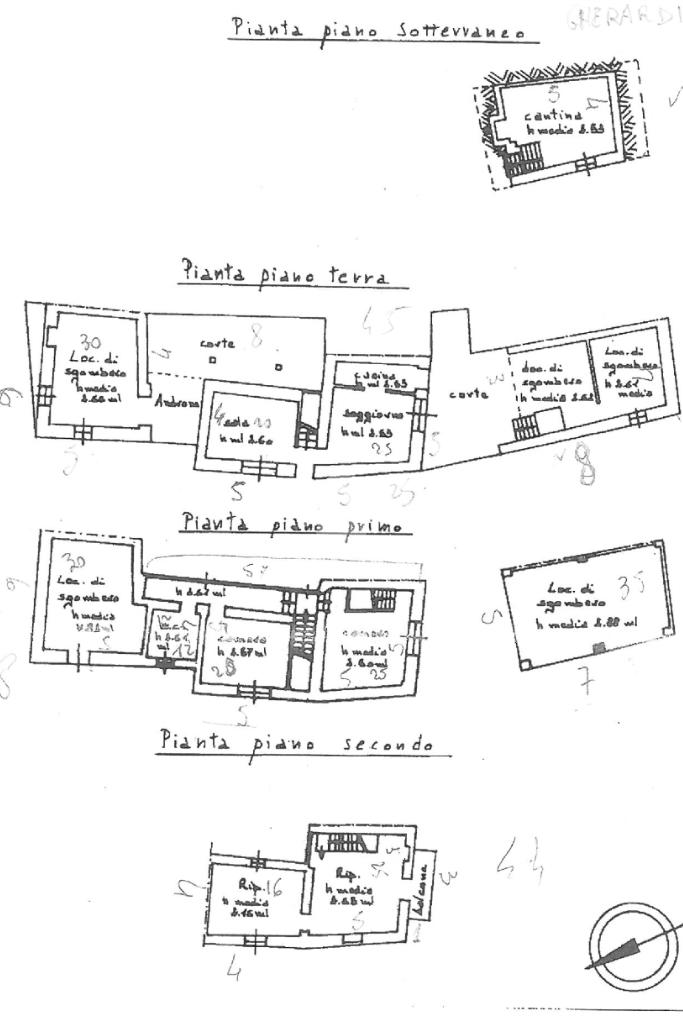 GHERARDI
Pianta piano sotterraneo
5
4
cantina
h media 2.53
Pianta piano terra
45
30
Loc. di
sgombero
h media
2.66 ml
corte
8
4
Androna
cucina
h ml 2.53
sala 20
h ml 2.60
4
soggiorno
h ml 2.53
25
corte
Loc. di
sgombero
h media 2.62
Loc. di
sgombero
media
5
5
5
25
8
Pianta piano primo
30
Loc. di
sgombero
h media
5
h 2.61 ml
12
camera
h 2.67 ml
camera
h media
2.60 ml
25
5
5
5
Loc. di
35
sgombero
h media 2.88 ml
5
7
Pianta piano secondo
44
Rip. 16
h media
2.15 ml
Rip.
h media
2.68 ml
balcone
3
4
4